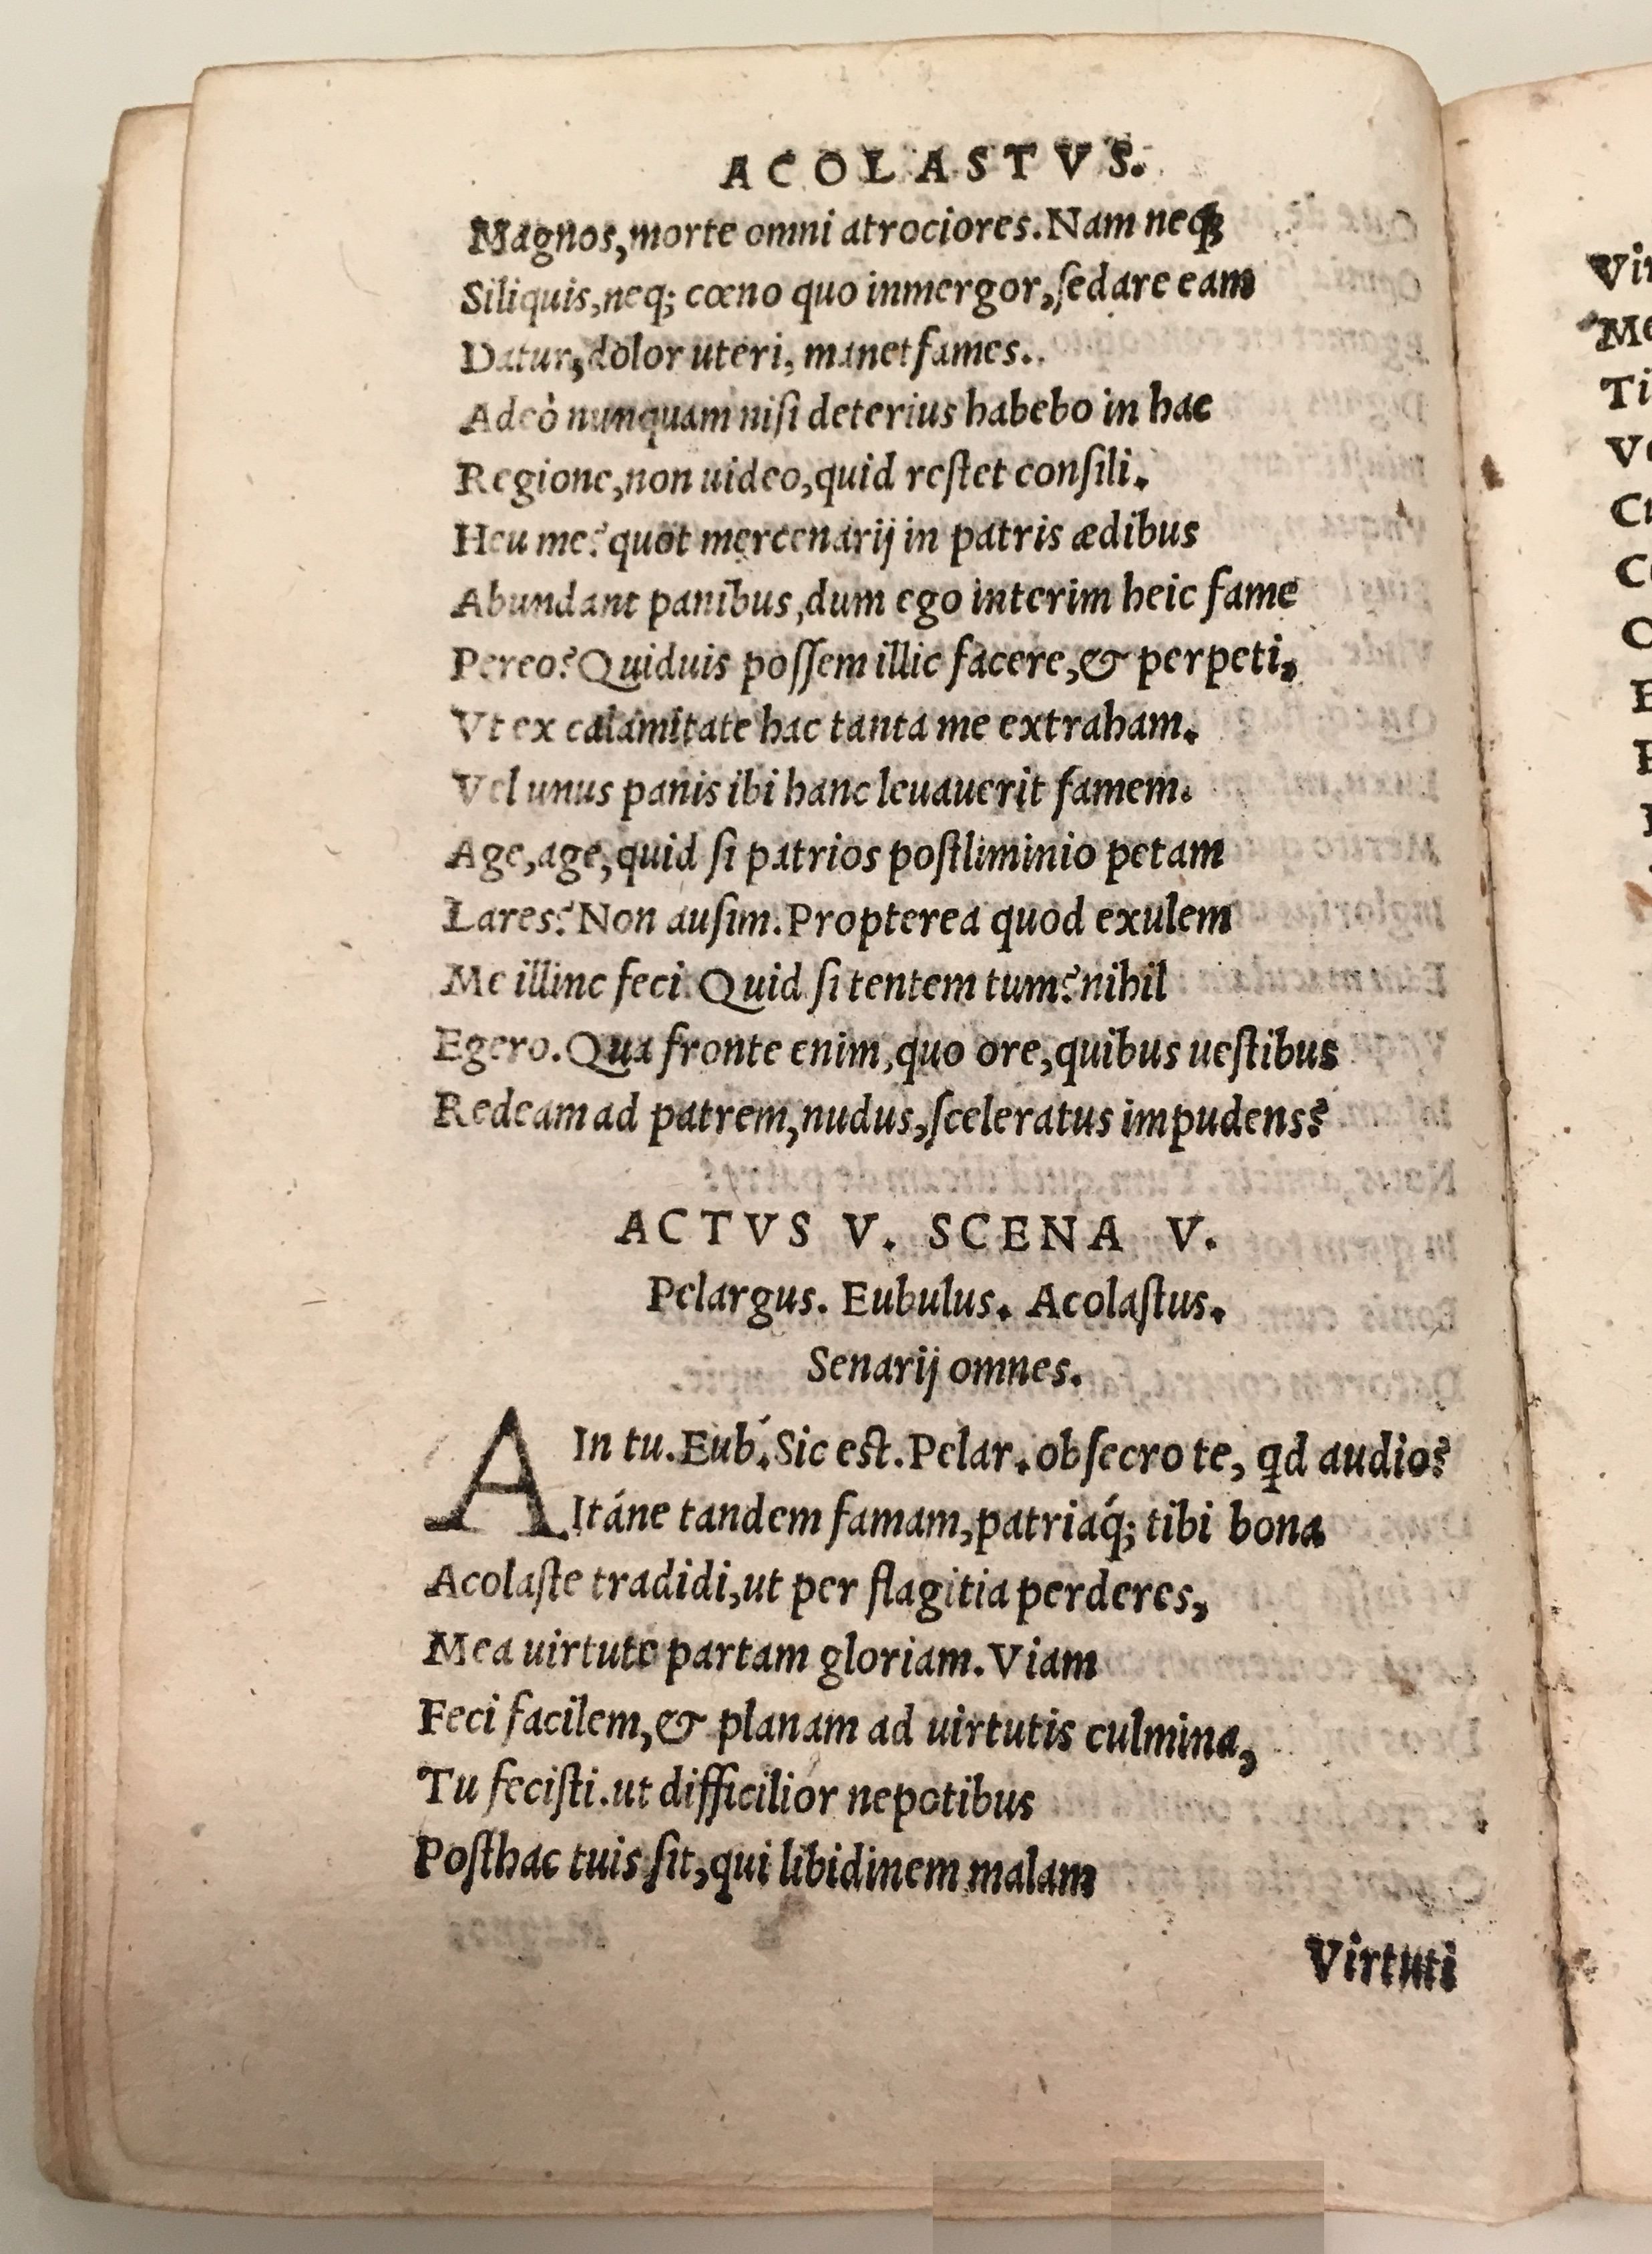 ACOLASTVS.
Magnos,morte omni atrociores.Nam neq;
Siliquis,neq; cœno quo inmergor,ſedare eam
Datur,dolor uteri, manet fames.
Adeò nunquam niſi deterius habebo in hac
Regione,non uideo,quid reſtet conſili.
Heu me?quot mercenarij in patris ædibus
Abundant panibus,dum ego interim heic fame
Pereo?Quiduis poſſem illic facere,& perpeti,
Vt ex calamitate hac tanta me extraham.
Vel unus panis ibi hanc leuauerit famem.
Age,age,quid ſi patrios poſtliminio petam
Lares?Non auſim.Propterea quod exulem
Me illinc feci.Quid ſi tentem tum?nihil
Egero.Qua fronte enim,quo ore,quibus ueſtibus
Redeam ad patrem,nudus,ſceleratus impudens?
ACTVS V. SCENA V.
Pelargus. Eubulus. Acolaſtus.
Senarij omnes.
AIn tu.Eub.Sic eſt.Pelar.obſecro te, qd audio?
Itáne tandem famam,patriáq; tibi bona
Acolaſte tradidi,ut per flagitia perderes,
Mea uirtute partam gloriam.Viam
Feci facilem,& planam ad uirtutis culmina,
Tu feciſti.ut difficilior nepotibus
Poſthac tuis ſit,qui libidinem malam
Virtuti
Vir
Me
Ti